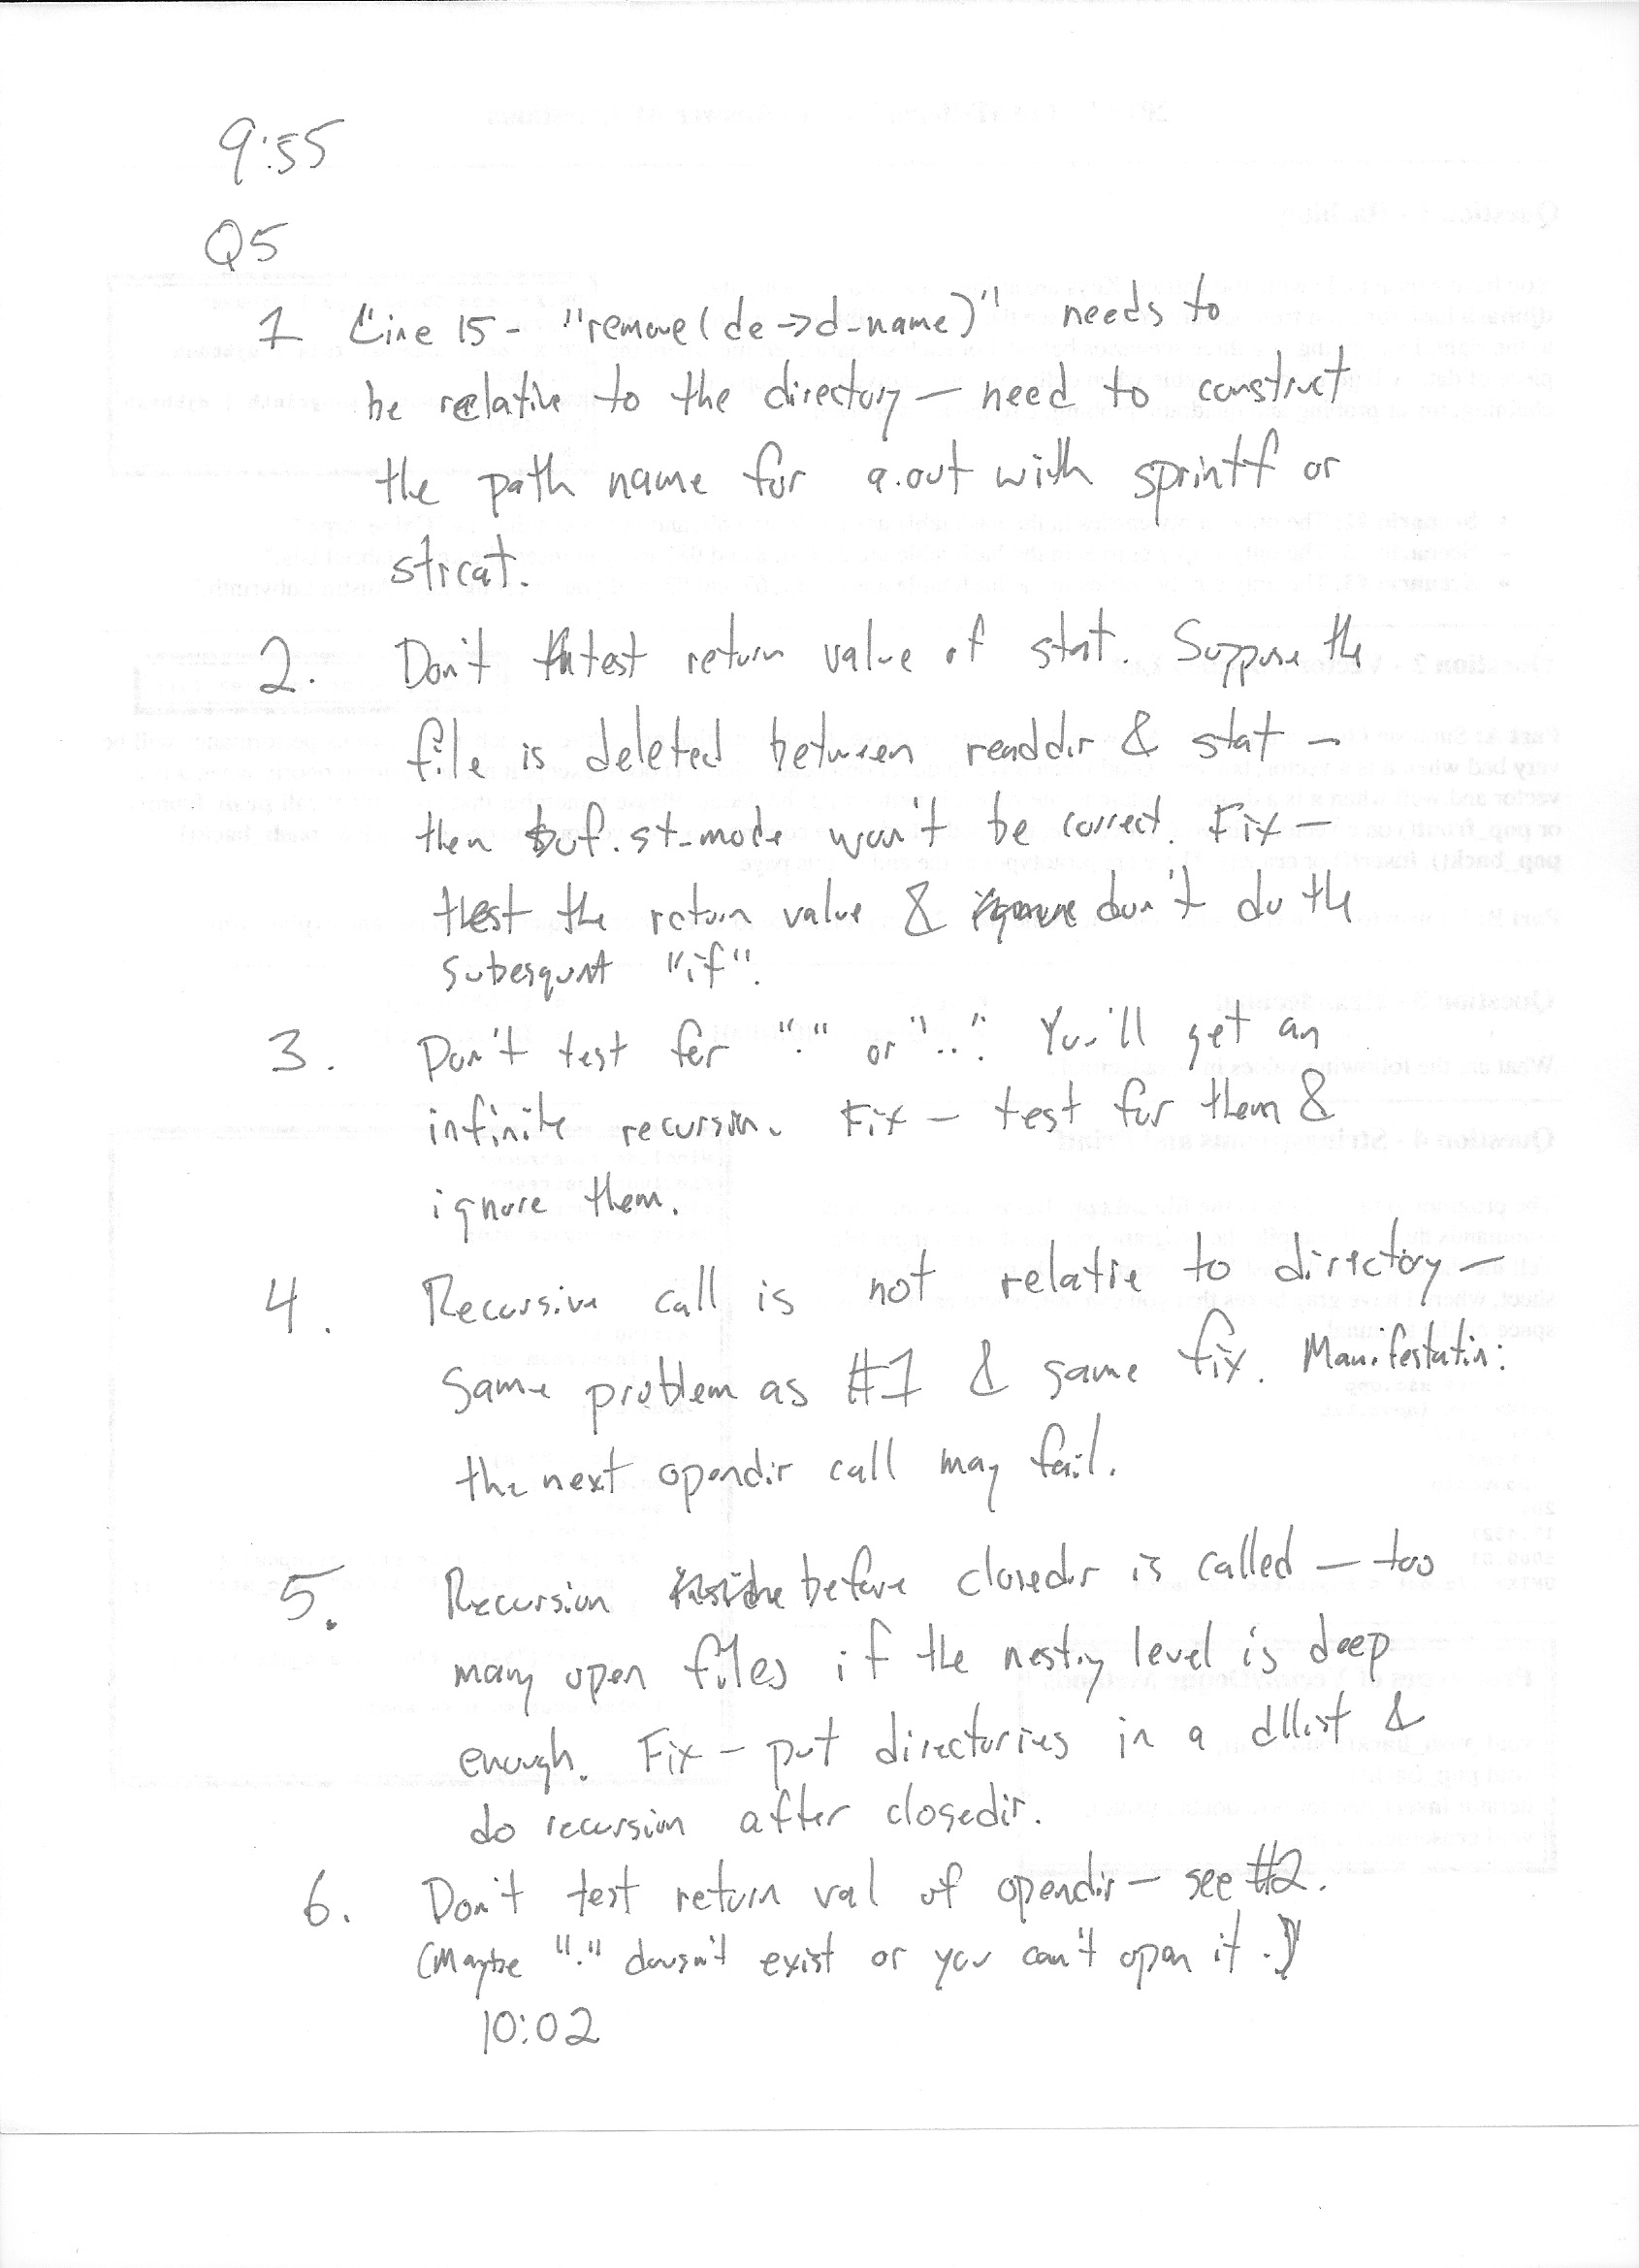 9:55
Q5
1 Line 15 - "remove(de->d-name)" needs to
be relative to the directory — need to construct
the path name for a.out with sprintf or
strcat.
2. Don't test return value of stat. Suppose the
file is deleted between readdir & stat —
then buf.st-mode won't be correct. Fix —
test the return value & don't do the
subesqunt "if".
3. Don't test for "." or "..". You'll get an
infinite recursion. Fix — test for them &
ignore them.
4. Recursive call is not relative to directory —
Same problem as #1 & same fix. Manifestatin:
the next opendir call may fail.
5. Recursion before closedir is called — too
many open files if the nesting level is deep
enough. Fix — put directories in a dllist &
do recursion after closedir.
6. Don't test return val of opendir — see #2.
(Maybe "." doesn't exist or you can't open it.)
10:02